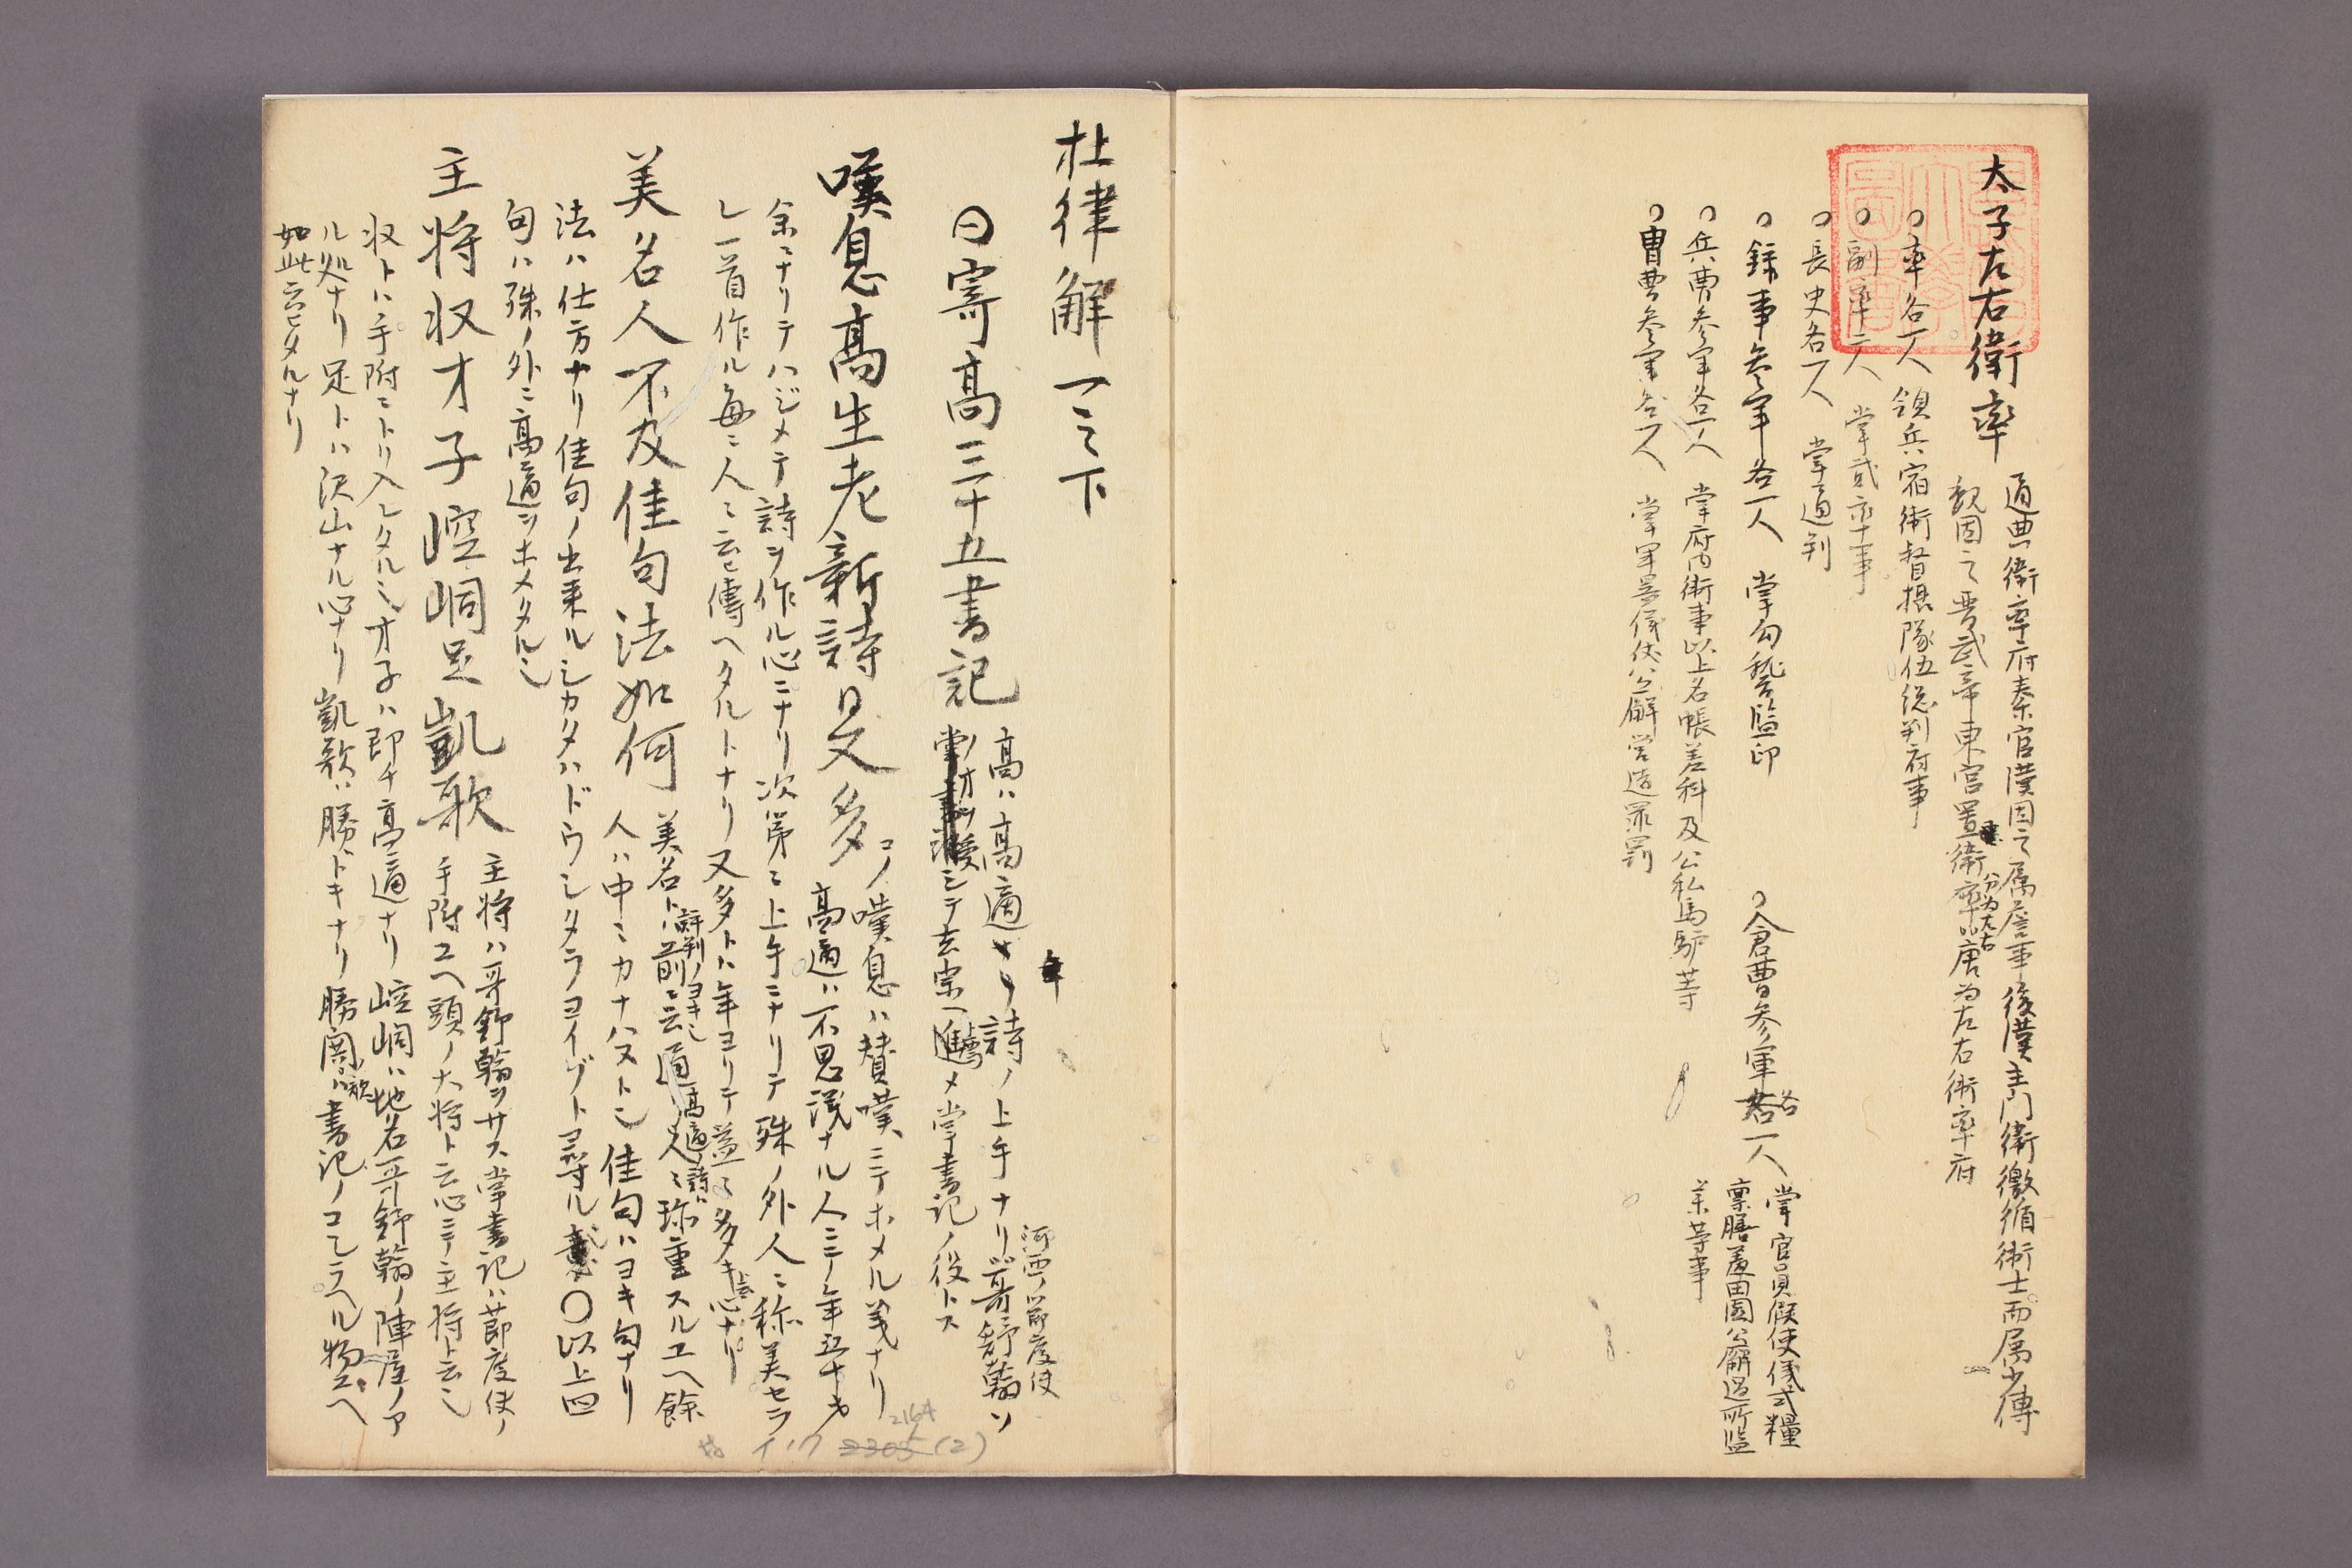 太子左右衛率
通典衛率府秦官漢因之属詹事後漢主門衛徼循衛士而属少傅
魏因之晋武帝東宮置衛率分為左右唐為左右衛率府
○率各一人 領兵宿衛督摂隊伍総判府事
○副率二人 掌貳率事
○長史各一人 掌通判
○録事参軍各一人 掌勾稽監印
○倉曹参軍各一人 掌官員假使儀式糧
禀膳羞田園公廨過所監
等事
○兵曹参軍各一人 掌府内衛事以上名帳差科及公私馬駅等
○冑曹参軍各一人 掌軍器儀仗公廨営造罪罰
杜律解一之下
○寄高三十五書記
高ハ高適ナリ詩ノ上手ナリ河西ノ節度使哥舒翰ソ
ノ才ヲ愛シテ玄宗ヘ進メ掌書記ノ役トス
嘆息高生老新詩日又多
コノ嘆息ハ賛嘆ニテホメル義ナリ
高適ハ不思議ナル人ニテ年五十才
余ニナリテハジメテ詩ヲ作ル心ニナリ次第ニ上手ニナリテ殊ノ外人ニ称美セラ
レ一首作ル毎ニ人ニ云ヒ傳ヘタルトナリ又多トハ年ヨリテ益々多キ心ナリ
美名人不及佳句法如何
美名ト評判ノヨキ前ニ云通高適ノ詩ハ人ニ珎重スルユヘ餘
人ハ中々カナハヌト也佳句ハヨキ句ナリ
法ハ仕方ナリ佳句ノ出来ルシカタハドウシタラヨイゾト尋ル○以上四
句ハ殊ノ外ニ高適ヲホメタル也
主将収才子崆峒足凱歌
主将ハ哥舒翰ヲサス掌書記ハ節度使ノ
手附ユヘ頭ノ大将ト云心ニテ主将ト云也
収トハ手附ニトリ入レタル也才子ハ即チ高適ナリ崆峒ハ地名哥舒翰ノ陣屋ノア
ル処ナリ足トハ沢山ナル心ナリ凱歌ハ勝ドキナリ勝閧歌ハ書記ノコシラヘル物ユヘ
如此云ヒタルナリ
イ17 2305 (2)
2164